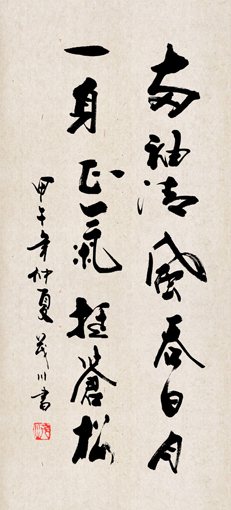 两袖清风吞日月
一身正气挂苍松
甲午年仲夏 茂川书